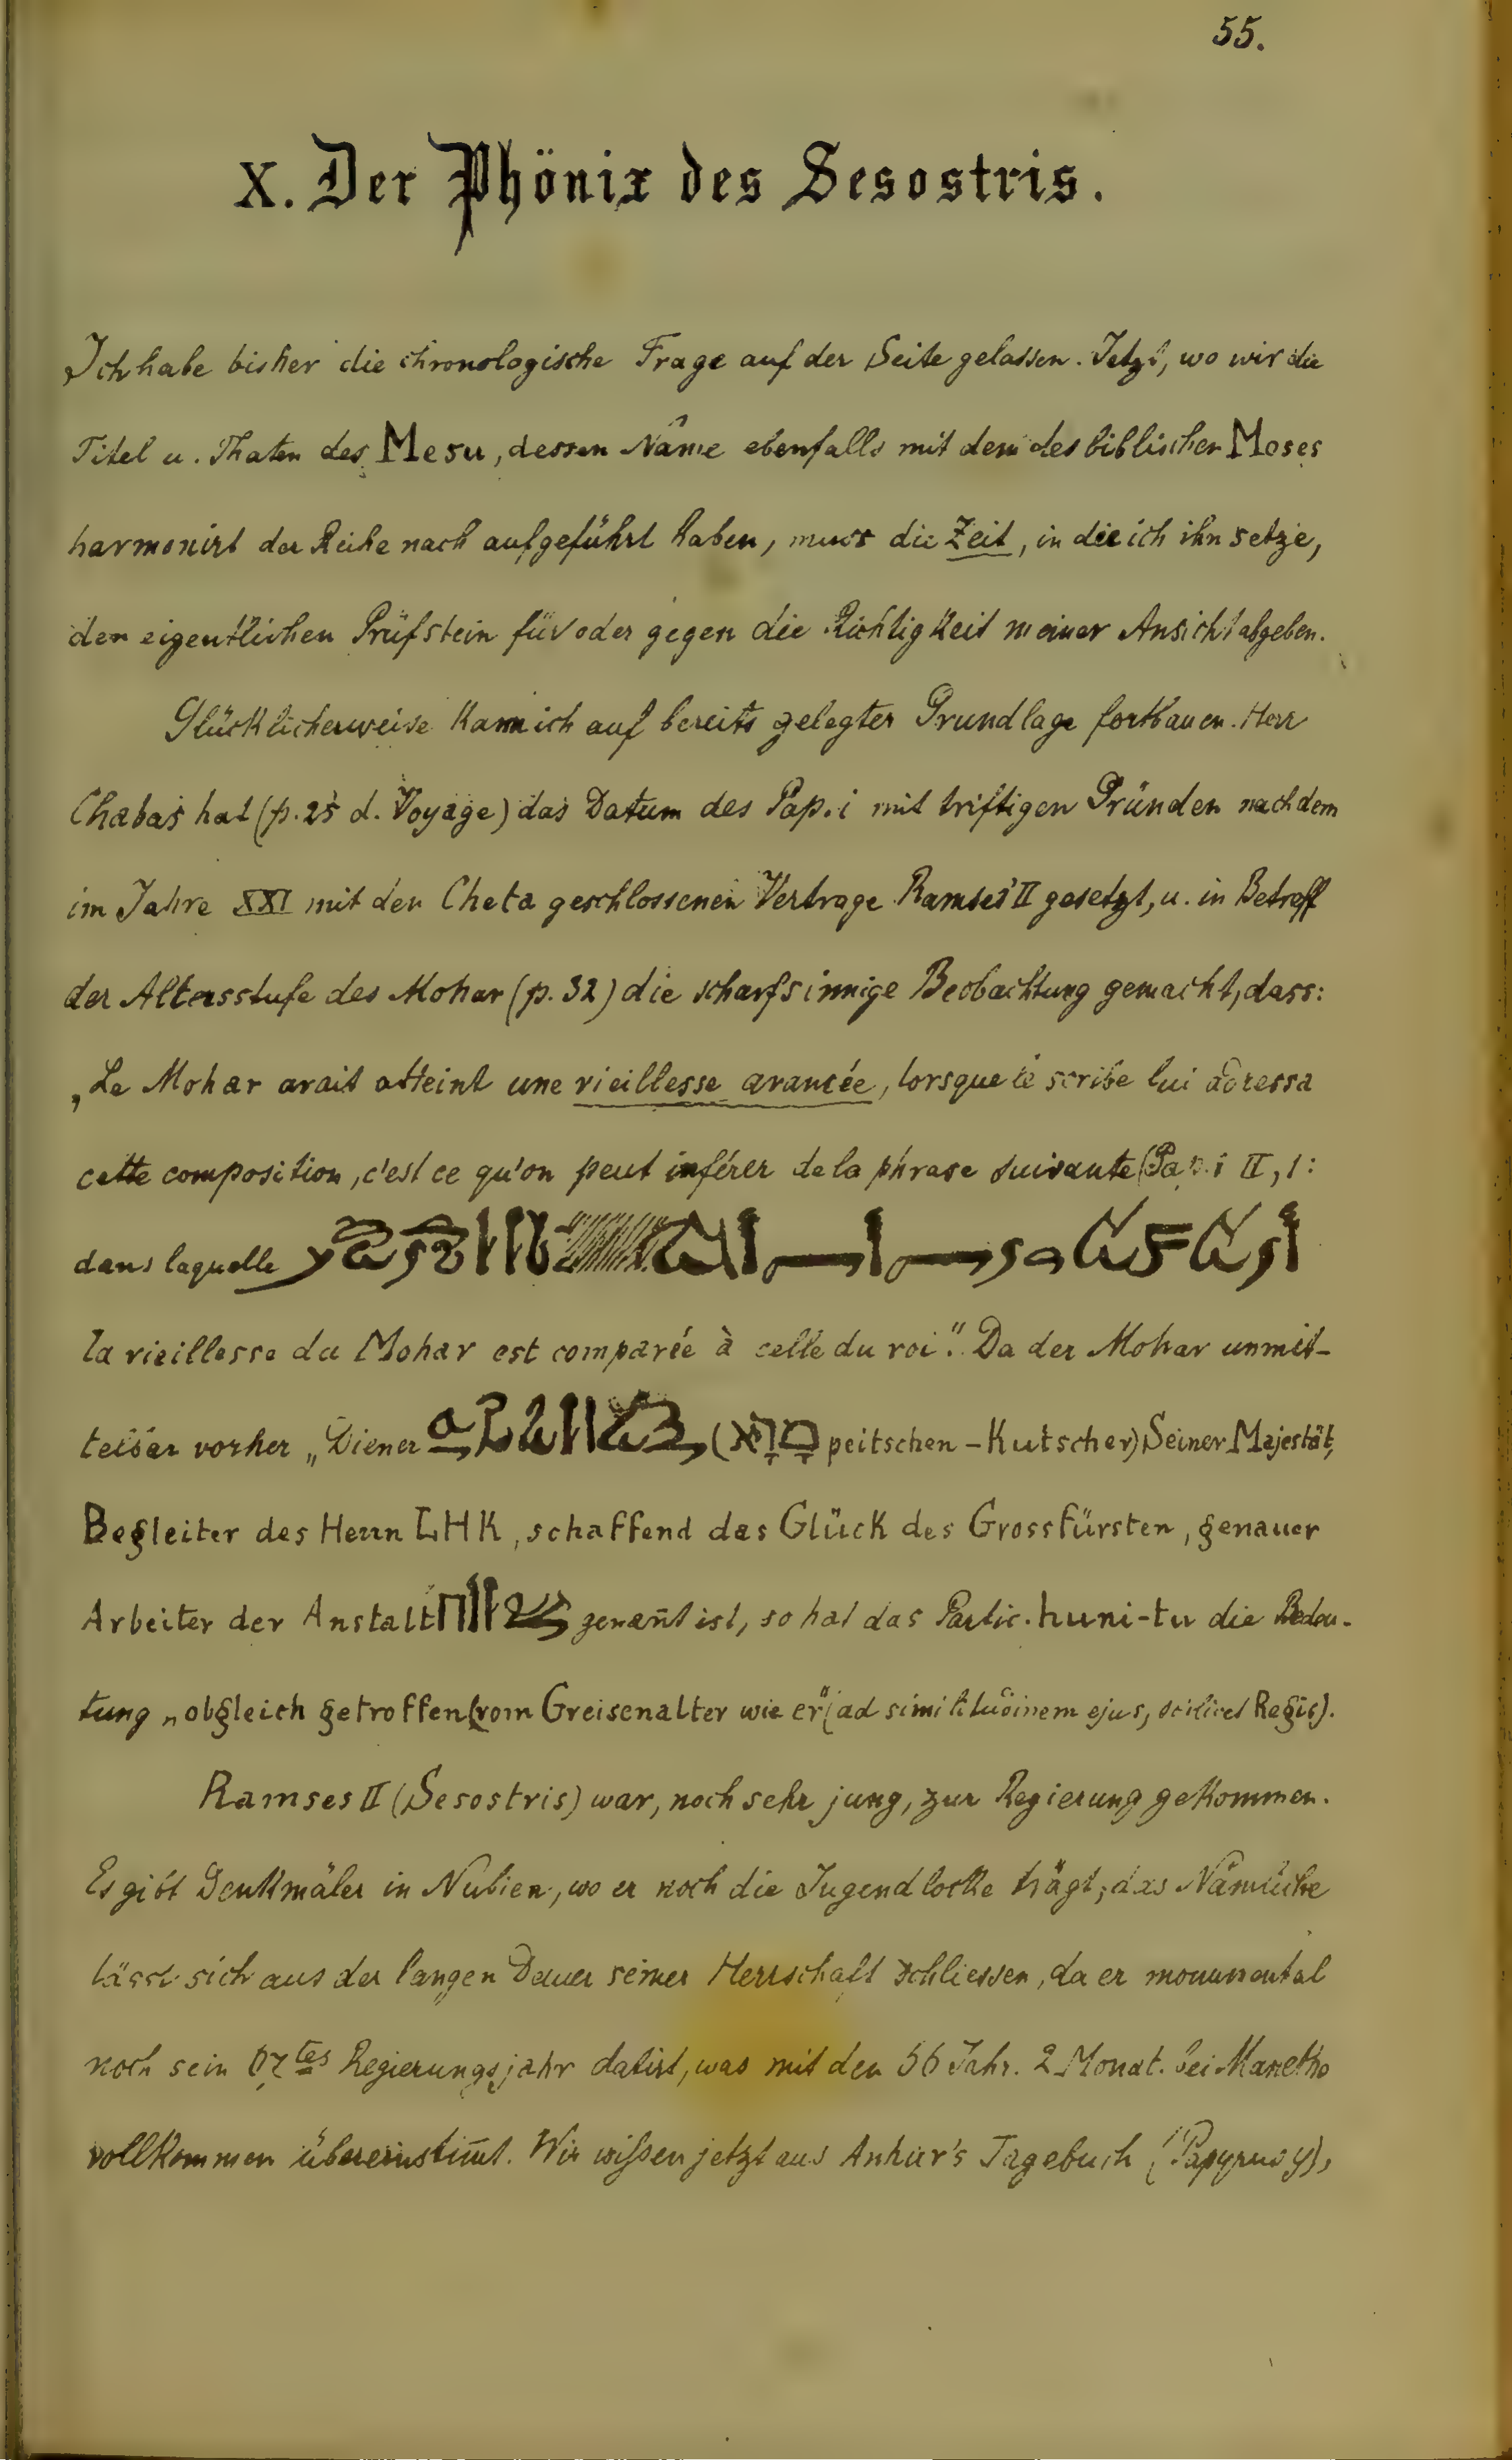 55.
X. Der Phönix des Sesostris.
Ich habe bisher die chronologische Frage auf der Seite gelassen. Jetzt, wo wir die
Titel u. Thaten des Mesu, dessen Name ebenfalls mit dem des biblischen Moses
harmonirt der Reihe nach aufgeführt haben, muss die Zeit, in die ich ihn setze,
den eigentlichen Prüfstein für oder gegen die Richtigkeit meiner Ansicht abgeben.
Glücklicherweise kann ich auf bereits gelegter Grundlage fortbauen. Herr
Chabas hat (p. 25 d. Voyage) das Datum des Pap. i mit triftigen Gründen nach dem
im Jahre XXI mit den Cheta geschlossenen Vertrage Ramses' II gesetzt, u. in Betreff
der Altersstufe des Mohar (p. 32) die scharfsinnige Beobachtung gemacht, dass:
„Le Mohar avait atteint une vieillesse avancée, lorsque le scribe lui adressa
cette composition, c'est ce qu'on peut inférer de la phrase suivante (Pap. i II, 1:
dans laquelle
la vieillesse du Mohar est comparée à celle du roi". Da der Mohar unmit-
telbar vorher „Diener (מרא peitschen-Kutscher) Seiner Majestät,
Begleiter des Herrn LHK, schaffend das Glück des Grossfürsten, genauer
Arbeiter der Anstalt genan̄t ist, so hat das Partic. huni-tu die Bedeu-
tung „obgleich getroffen (vom Greisenalter wie er" (ad similitudinem ejus, scilicet Regis).
Ramses II (Sesostris) war, noch sehr jung, zur Regierung gekommen.
Es gibt Denkmäler in Nubien, wo er noch die Jugendlocke trägt; das Nämliche
lässt sich aus der langen Dauer seiner Herrschaft schliessen, da er monumental
noch sein 67tes Regierungsjahr datirt, was mit den 66 Jahr. 2 Monat. bei Manetho
vollkommen übereinstim̄t. Wir wissen jetzt aus Anhur's Tagebuch (Papyrus y),